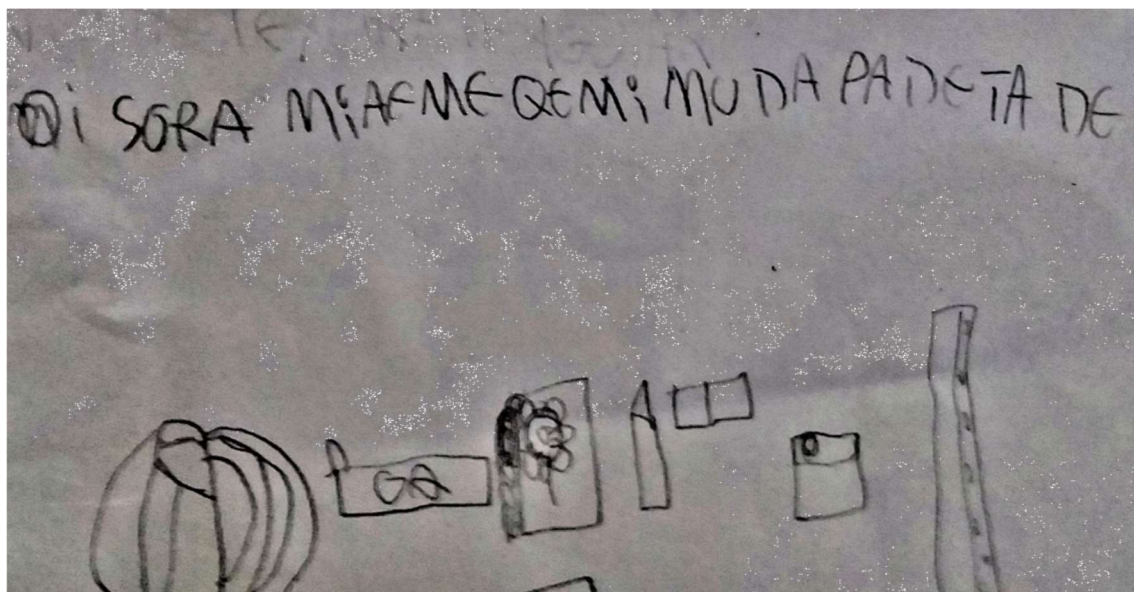 Oi SORA MiAEME QEMi MUDA PA DE TA DE